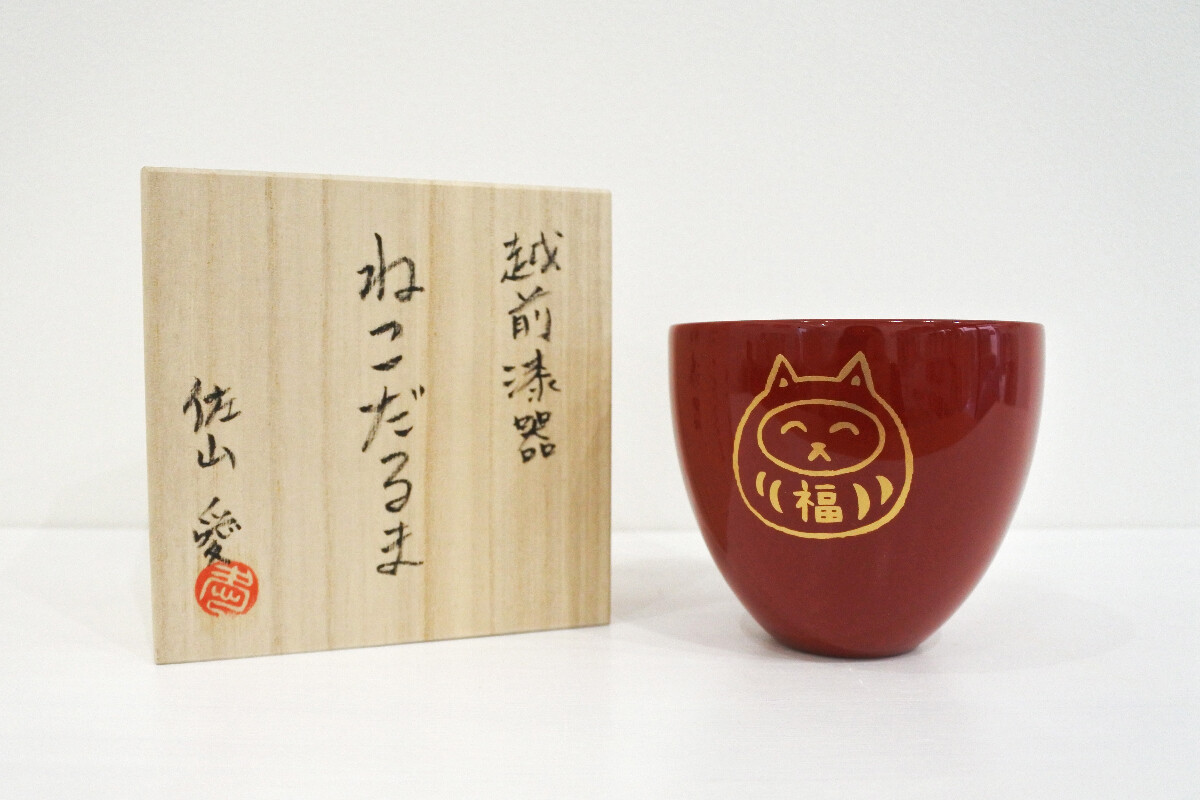 越前漆器
ねこだるま
佐山 愛
福